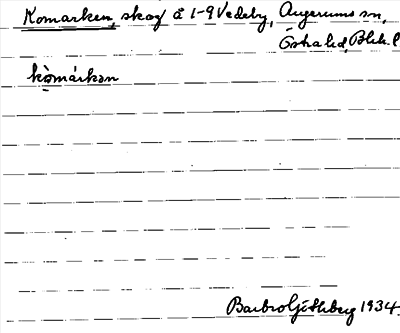 Komarken, skog å 1-9 Vedeby, Augerums sn,
Östra hd, Blek. l
kòmárkən
Barbro 1934.